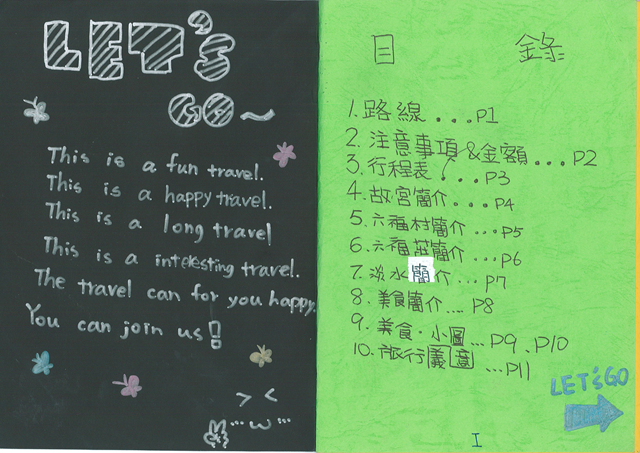 LET'S
GO~
This is a fun travel.
This is a happy travel.
This is a long travel
This is a interesting travel.
The travel can for you happy.
You can join us!
> <
...ω...
目 錄
1. 路線...P1
2. 注意事項&金額...P2
3. 行程表...P3
4. 故宮簡介...P4
5. 六福村簡介...P5
6. 六福莊簡介...P6
7. 淡水簡介...P7
8. 美食簡介....P8
9. 美食·小圖...P9、P10
10. 旅行義意...P11
LET'S GO
I